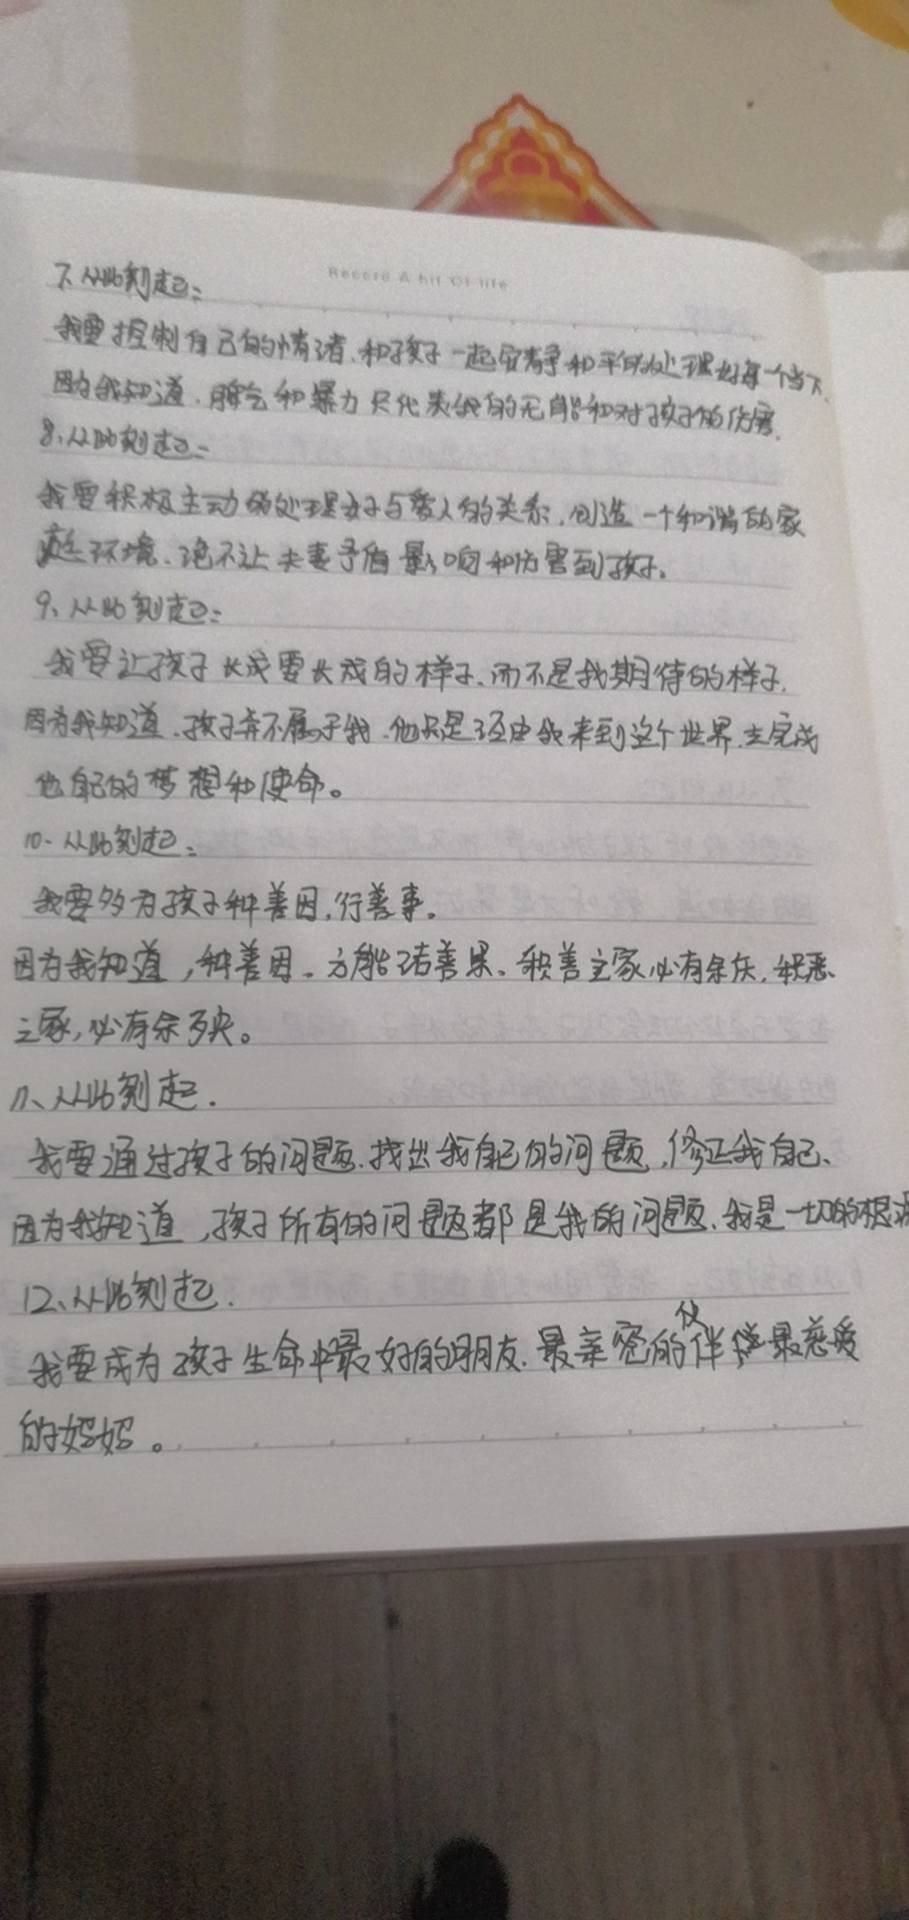 Record A bit Of life
7、从此刻起:
我要控制自己的情绪、和孩子一起安静和平的处理好每一个当下,
因为我知道、脾气和暴力只代表我的无能和对孩子的伤害,
8、从此刻起:
我要积极主动的处理好与爱人的关系,创造一个和谐的家
庭环境、绝不让夫妻矛盾影响和伤害到孩子。
9、从此刻起:
我要让孩子长成要长成的样子、而不是我期待的样子,
因为我知道、孩子并不属于我、他只是经由我来到这个世界、去完成
他自己的梦想和使命。
10、从此刻起:
我要多为孩子种善因,行善事。
因为我知道,种善因、方能结善果、积善之家必有余庆,积恶
之家,必有余殃。
11、从此刻起.
我要通过孩子的问题、找出我自己的问题,修正我自己、
因为我知道,孩子所有的问题都是我的问题、我是一切的根源
12、从此刻起.
我要成为孩子生命中最好的朋友、最亲密的伙伴 最慈爱
的妈妈。